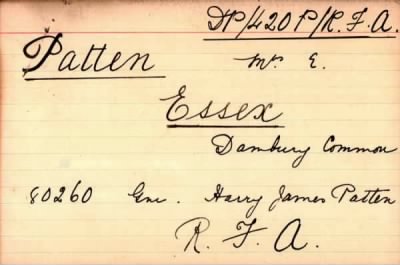 DP/420P/R.F.A.
Patten Mr E.
Essex
Danbury Common
80260 Gnr. Harry James Patten
R. F. A.